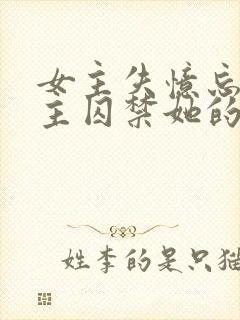 女主失憶忘
主囚禁她的
姓李的是只猫